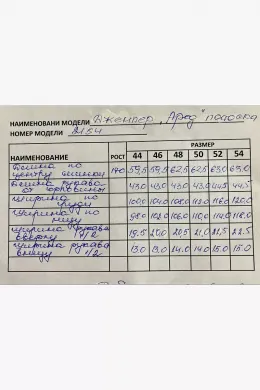 НАИМЕНОВАНИ МОДЕЛИ Джемпер „Аред" полоска
НОМЕР МОДЕЛИ 2154
РАЗМЕР
НАИМЕНОВАНИЕ РОСТ 44 46 48 50 52 54
Длина по
центру спинки 170 59,5 59,5 62,5 62,5 63,0 63,0
Длина рукава
от горловины 43,0 43,0 43,0 43,0 44,5 44,5
Ширина по
груди 100,0 104,0 108,0 112,0 116,0 120,0
Ширина по
низу 98,0 102,0 106,0 110,0 114,0 118,0
Ширина рукава
вверху 1/2 19,5 20,0 20,5 21,0 22,5 22,5
Ширина рукава
внизу 1/2 13,0 13,0 14,0 14,0 15,0 15,0